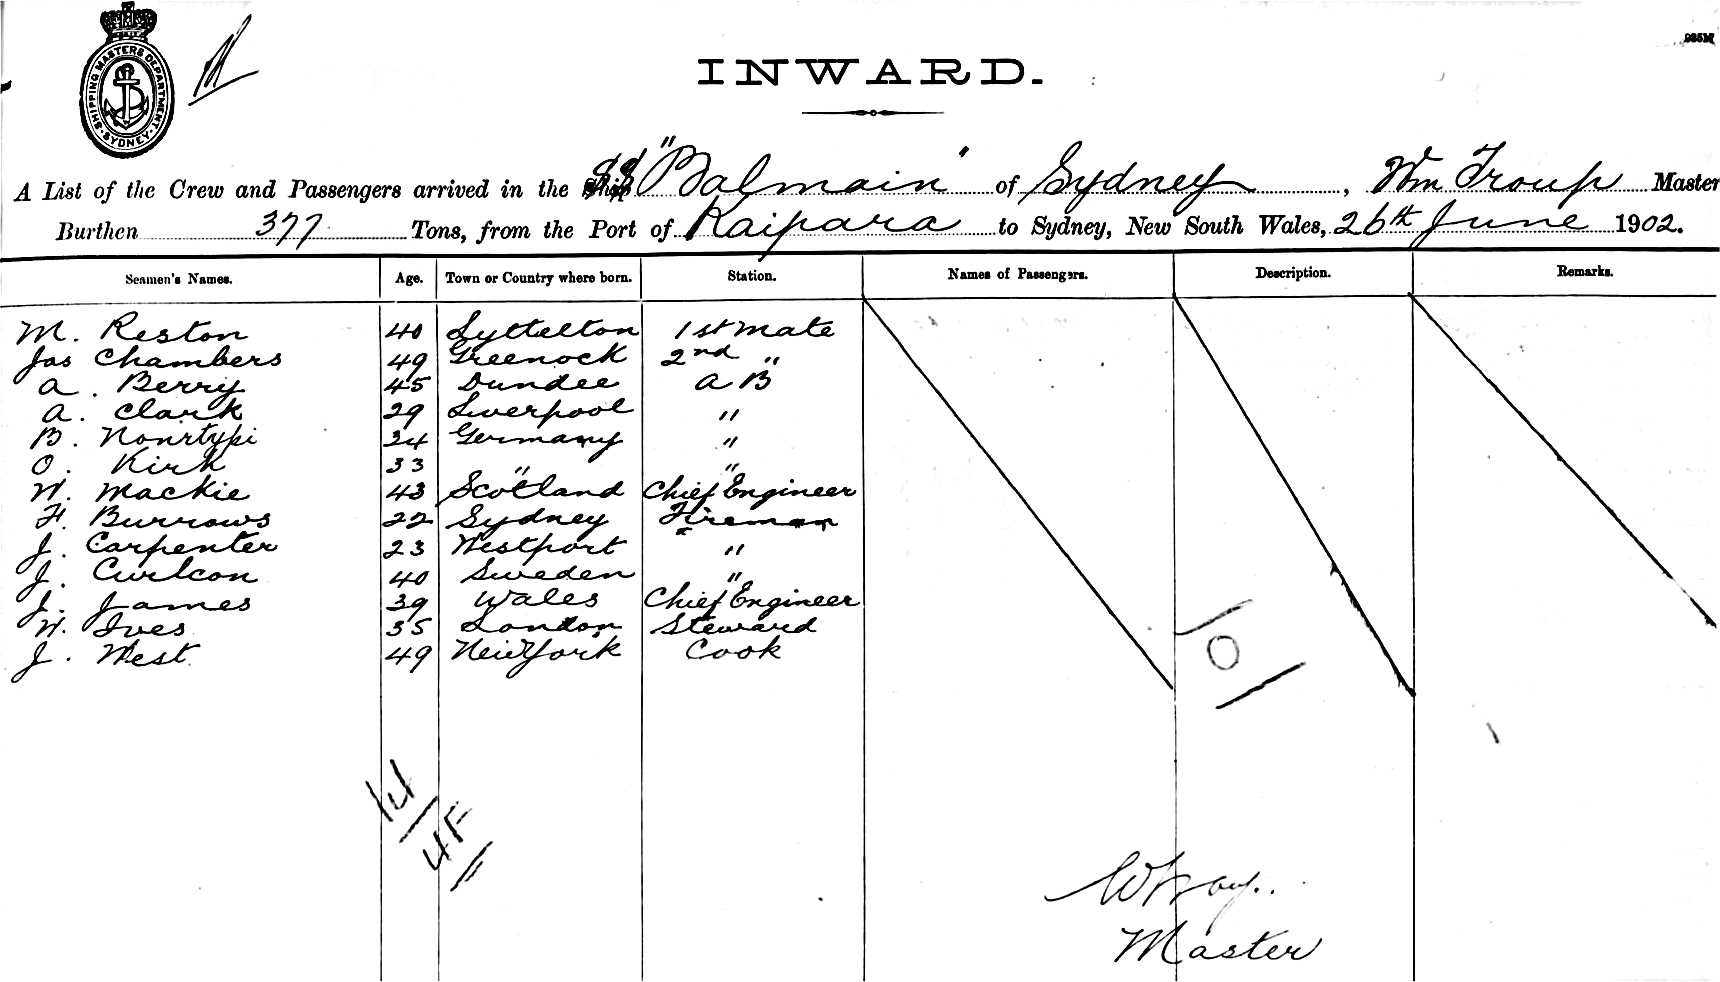 SHIPPING MASTERS DEPARTMENT
SYDNEY
985M
INWARD.
A List of the Crew and Passengers arrived in the SS "Balmain" of Sydney, Wm Troup Master
Burthen 377 Tons, from the Port of Kaipara to Sydney, New South Wales, 26th June 1902.
Seamen's Names. Age. Town or Country where born. Station. Names of Passengers. Description. Remarks.
M. Reston 40 Lyttelton 1st Mate
Jas Chambers 49 Greenock 2nd "
A. Berry 45 Dundee A B
A. Clark 29 Liverpool "
B. 34 Germany "
O. Kirk 33 " "
W. Mackie 43 Scotland Chief Engineer
F. Burrows 22 Sydney Fireman
J. Carpenter 23 Westport "
J. 40 Sweden "
J. James 39 Wales Chief Engineer
W. Ives 35 London Steward
J. West 49 New York Cook
Master